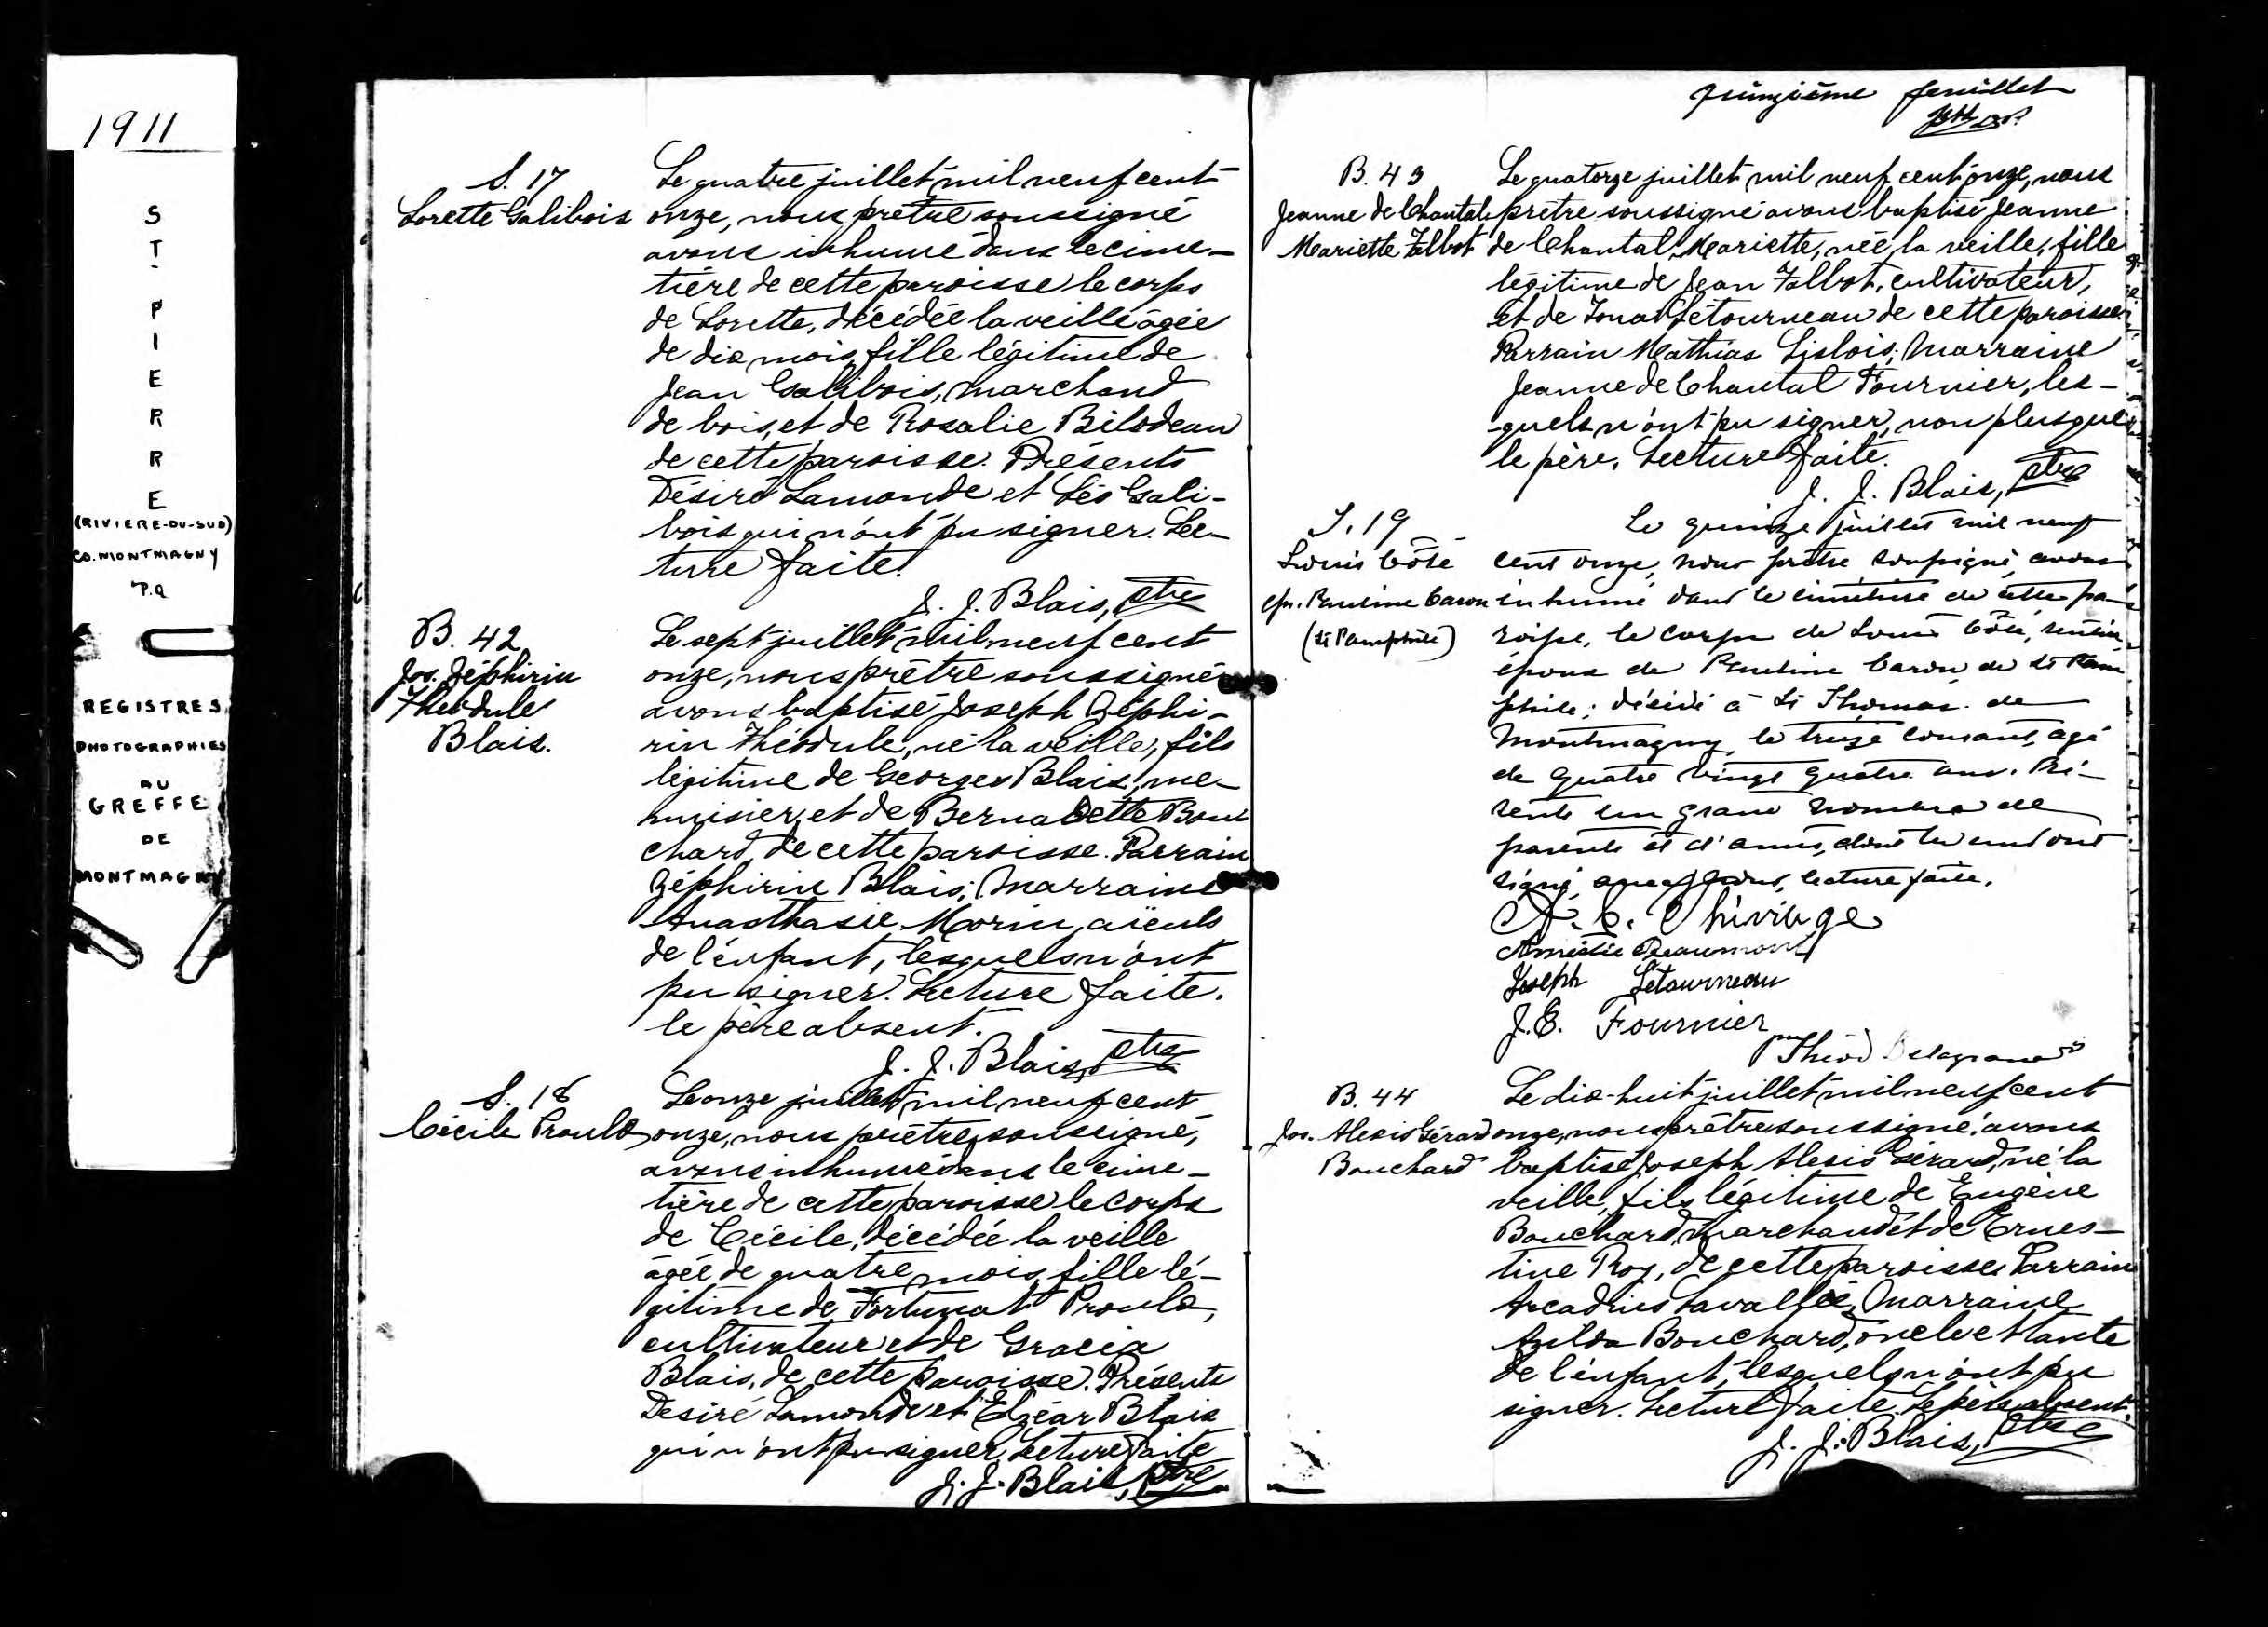 1911
ST-PIERRE
(RIVIERE-DU-SUD)
CO. MONTMAGNY
P.Q
REGISTRES
PHOTOGRAPHIES
AU
GREFFE
DE
MONTMAGNY
S. 17
Lorette Galibois
Le quatre juillet mil neuf cent
onze, nous prêtre soussigné
avons inhumé dans le cime-
tière de cette paroisse le corps
de Lorette, décédée la veille âgée
de dix mois, fille légitime de
Jean Galibois, marchand
de bois, et de Rosalie Bilodeau
de cette paroisse. Présents
Désiré Lamonde et Léo Gali-
bois qui n'ont pu signer. Lec-
ture faite.
J. J. Blais, ptre
B. 42
Jos. Zéphirin
Théodule
Blais.
Le sept juillet mil neuf cent
onze, nous prêtre soussigné
avons baptisé Joseph Zéphi-
rin Théodule, né la veille, fils
légitime de Georges Blais, me-
nuisier, et de Bernadette Bou
chard, de cette paroisse. Parrain
Zéphirin Blais; Marraine
Anasthasie Morin, aïeuls
de l'enfant, lesquels n'ont
pu signer. Lecture faite.
le père absent.
J. J. Blais, ptre
S. 18
Cécile Proulx
Le onze juillet mil neuf cent
onze, nous prêtre soussigné,
avons inhumé dans le cime-
tière de cette paroisse le corps
de Cécile, décédée la veille
âgée de quatre mois, fille lé-
gitime de Fortunat Proulx,
cultivateur et de Gracia
Blais, de cette paroisse. Présents
Desiré Lamonde et Elzéar Blais
qui n'ont pu signer. Lecture faite
J. J. Blais, ptre
quinzième feuillet
B. 43
Jeanne de Chantal
Mariette Talbot
Le quatorze juillet mil neuf cent onze, nous
prêtre soussigné avons baptisé Jeanne
de Chantal, Mariette, née la veille, fille
légitime de Jean Talbot, cultivateur,
et de Létourneau de cette paroisse.
Parrain Mathias Lislois; Marraine
Jeanne de Chantal Fournier, les-
quels n'ont pu signer, non plus que
le père. Lecture faite.
J. J. Blais, ptre
S. 19
Louis Côté
ép. Pauline Caron
(St Pamphile)
Le quinze juillet mil neuf
cent onze, nous prêtre soussigné, avons
inhumé dans le cimetière de cette pa-
roisse, le corps de Louis Côté, rentier,
époux de Pauline Caron, de St Pam
phile; décédé à St Thomas de
Montmagny, le treize courant, agé
de quatre vingt quatre ans. Pré-
sents un grand nombre de
parents et d'amis, dont les uns ont
signé avec nous, lecture faite.
Amédée Beaumont
Joseph Létourneau
J. E. Fournier
Théod Delagrave
B. 44
Jos. Alexis Gérard
Bouchard
Le dix-huit juillet mil neuf cent
onze, nous prêtre soussigné, avons
baptisé Joseph Alexis Gérard, né la
veille, fils légitime de Eugène
Bouchard, marchand et de Ernes-
tine Roy, de cette paroisse. Parrain
Arcadius Lavallée, Marraine
Azilda Bouchard, oncle et tante
de l'enfant, lesquels n'ont pu
signer. Lecture faite. Le père absent.
J. J. Blais, ptre